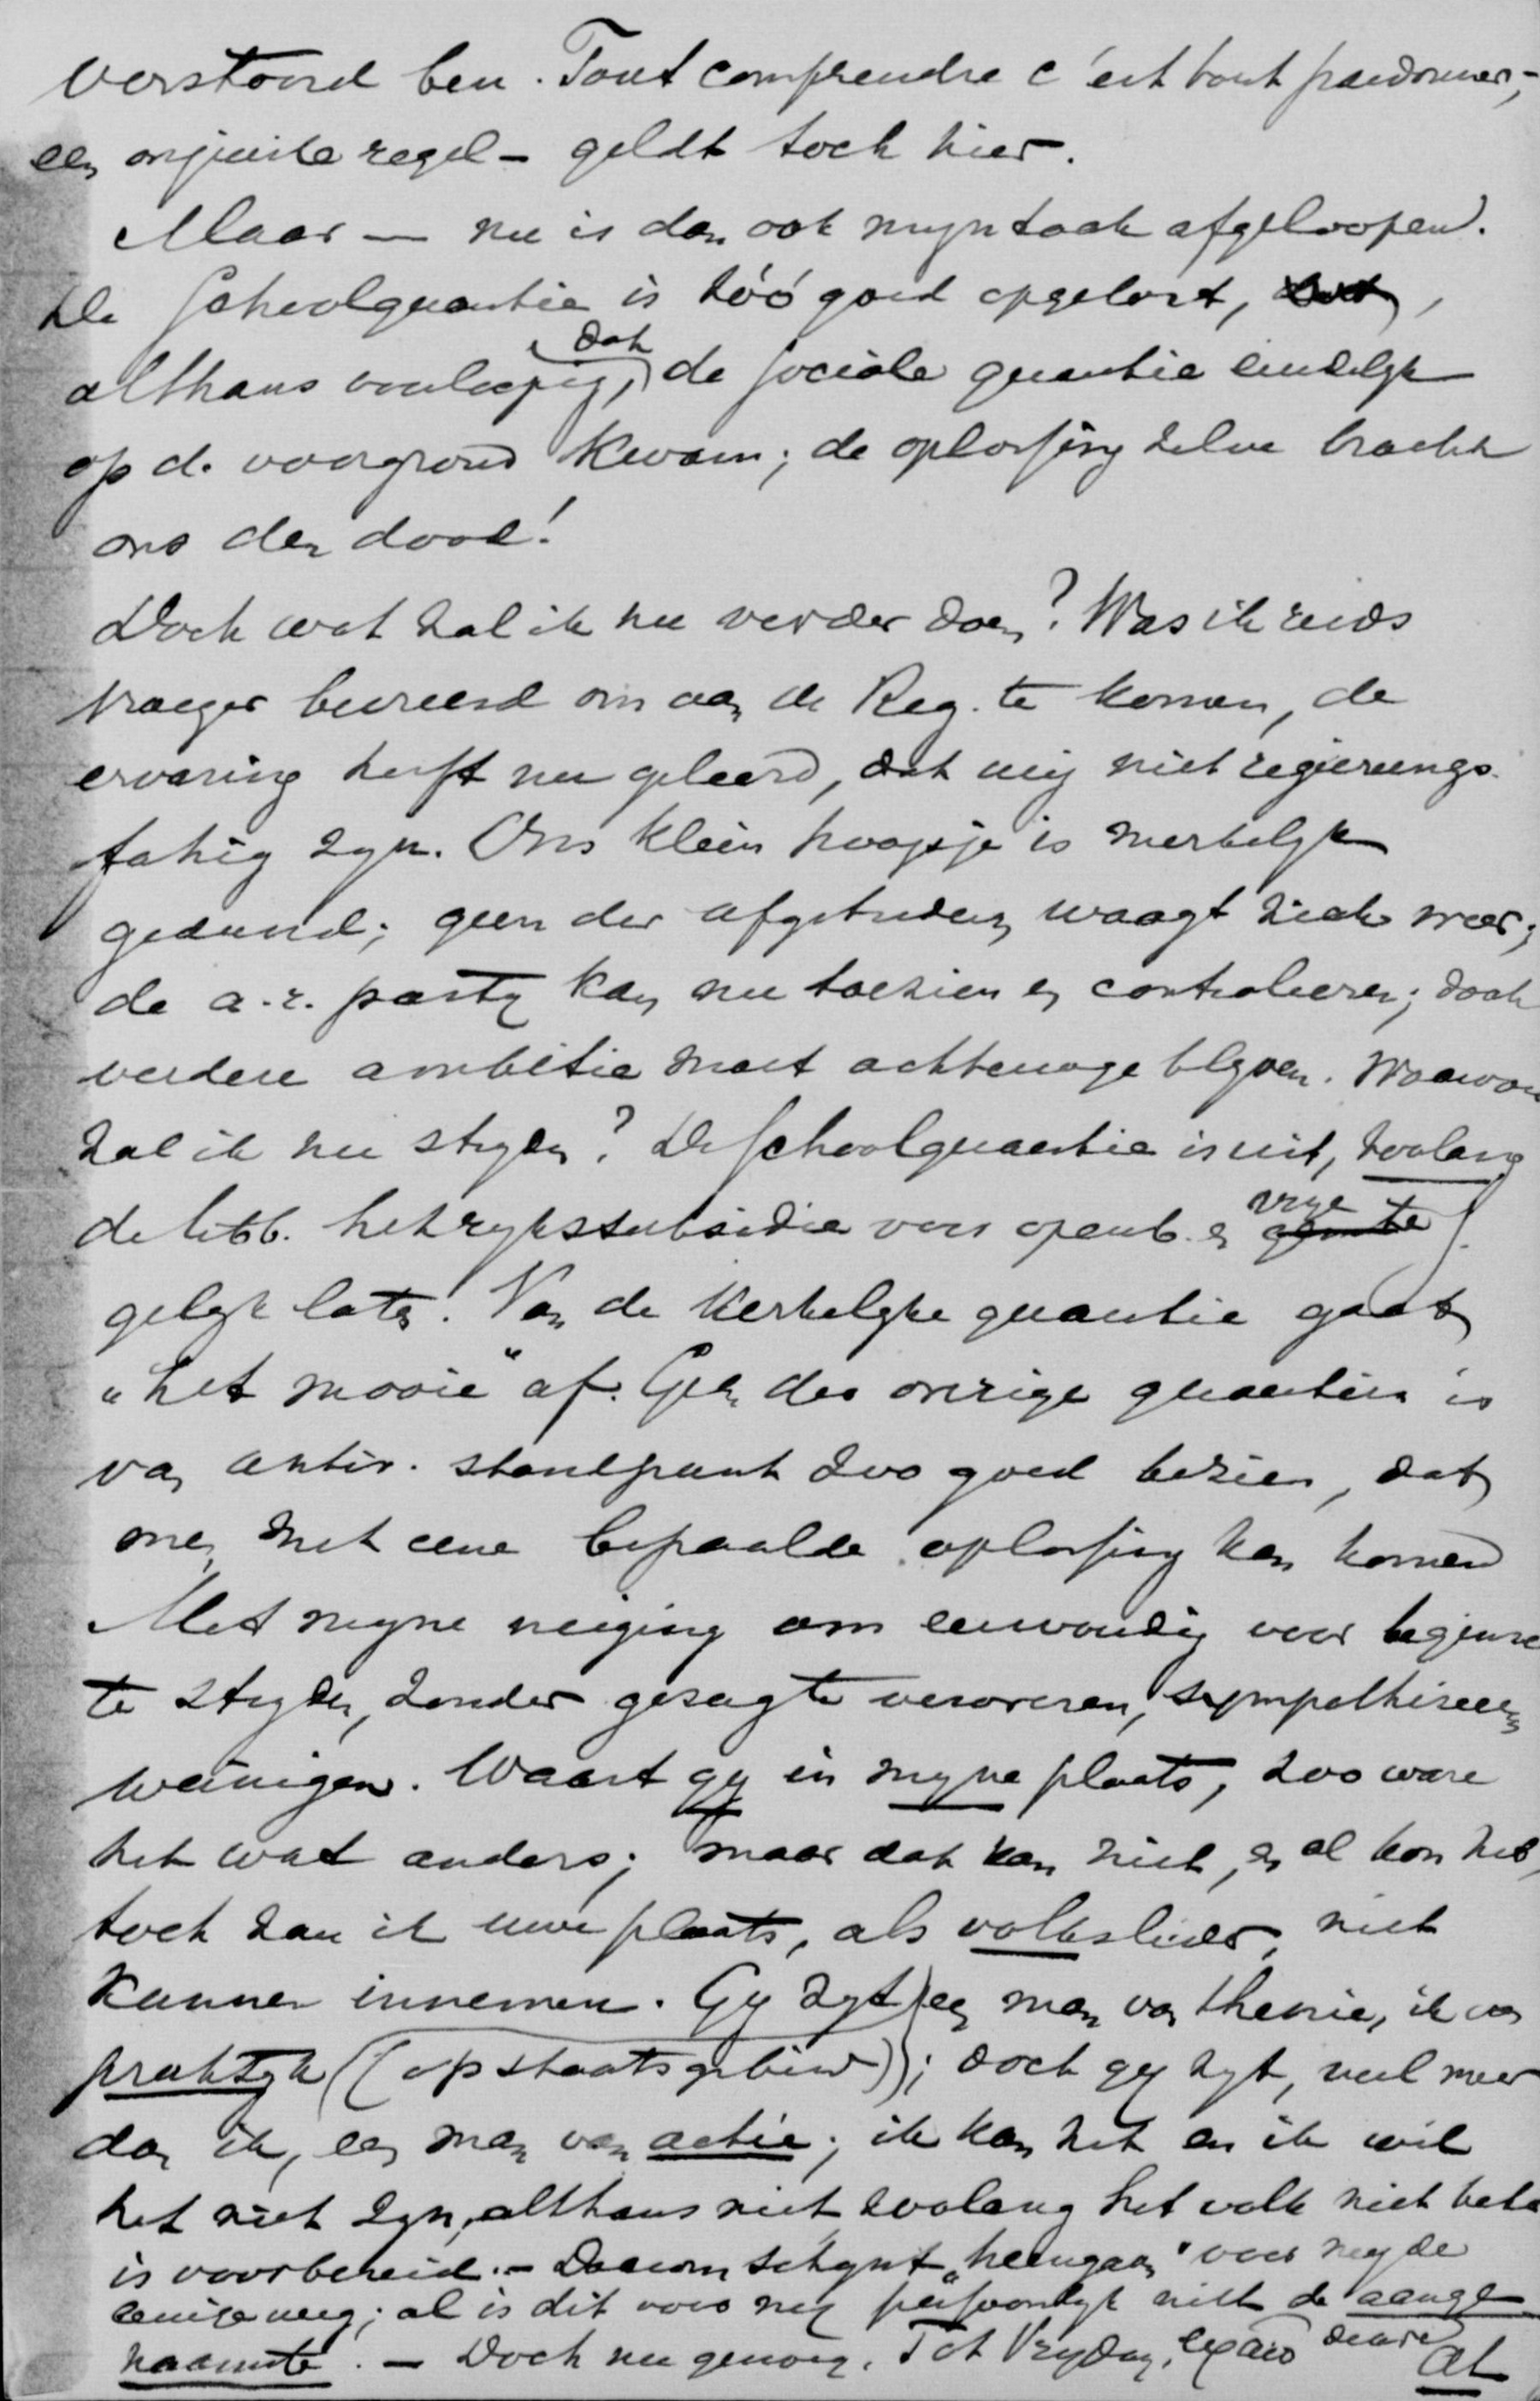 verstoord ben. Tout comprendre c'est tout pardonner,-
een onjuiste regel - geldt toch hier.
Maar — nu is dan ook mijn taak afgeloopen.
De schoolquaestie is zóó goed opgelost,
althans voorloopig, dat de sociale quaestie eindelijk
op de voorgrond kwam; de oplossing zelve bracht
ons den dood!
Doch wat zal ik nu verder doen? Was ik reeds
vroeger bevreesd om aan de Reg. te komen, de
ervaring heeft nu geleerd, dat wij niet regierungs-
fähig zijn. Ons klein hoopje is merkelijk
gedund; geen der afgetreden waagt zich weer;
de a.r. partij kan nu toezien en controleeren; doch
verdere ambitie moet achterwege blijven. Waarvoor
zal ik nu strijden? De schoolquaestie is uit, zoolang
de libb. het rijkssubsidie voor openb. en vrije s.
gelijk laten. Van de kerkelijke quaestie gaat
"het mooie" af. Geen der overige quaesties is
van antir. standpunt zoo goed bezien, dat
men met eene bepaalde oplossing kan komen
Met mijne neiging om eenvoudig voor beginsel
te strijden, zonder gezag te veroveren, sympathiseeren
weinigen. Waart gij in mijne plaats, zoo ware
het wat anders; maar dat kan niet, en al kon het,
toch zou ik uwe plaats, als volksleider, niet
kunnen innemen. Gij zijt een man van theorie, ik van
praktijk (op staatsgebied); doch gij zijt, veel meer
dan ik, een man van actie; ik kan het en ik wil
het niet zijn, althans niet zoolang het volk niet beter
is voorbereid. - Daarom schijnt "heengaan" voor mij de
eenige weg; al is dit voor mij persoonlijk niet de aange-
naamste. — Doch nu genoeg. Tot Vrijdag,